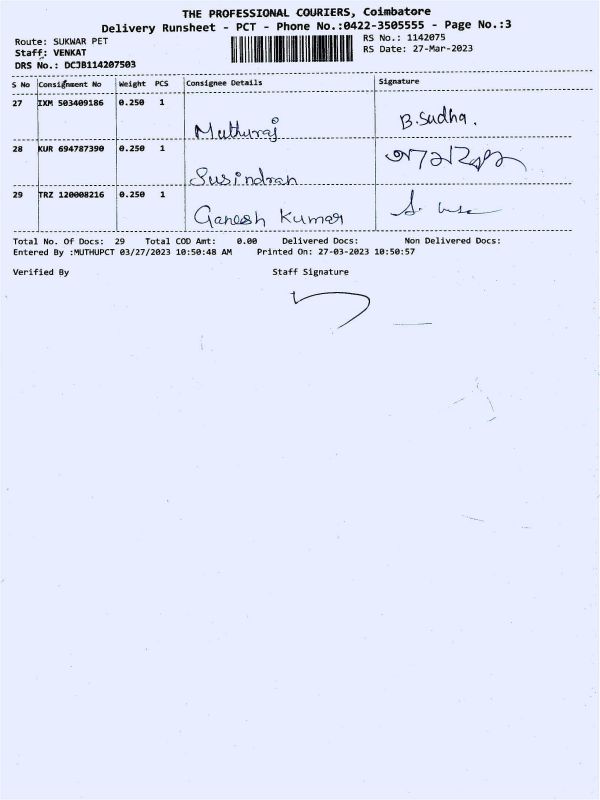 THE PROFESSIONAL COURIERS, Coimbatore
Delivery Runsheet - PCT - Phone No.:0422-3505555 - Page No.:3
Route: SUKWAR PET
RS No.: 1142075
Staff: VENKAT
RS Date: 27-Mar-2023
DRS No.: DCJB114207503
S No Consignment No Weight PCS Consignee Details Signature
27 IXM 503409186 0.250 1 Muthuraj B.Sudha.
28 KUR 694787390 0.250 1 Susindran
29 TRZ 120008216 0.250 1 Ganesh Kumar
Total No. Of Docs: 29 Total COD Amt: 0.00 Delivered Docs: Non Delivered Docs:
Entered By :MUTHUPCT 03/27/2023 10:50:48 AM Printed On: 27-03-2023 10:50:57
Verified By Staff Signature